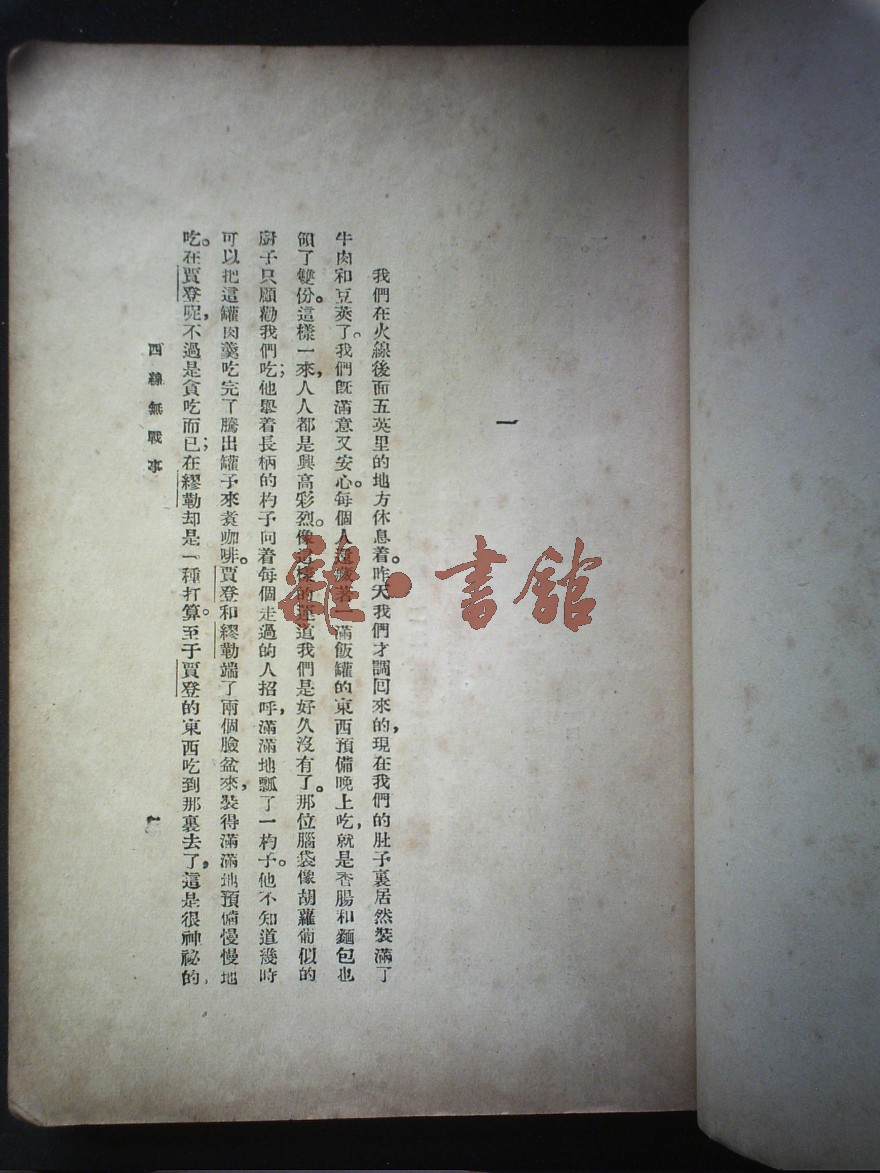 一
我們在火線後面五英里的地方休息着。昨天我們才調回來的，現在我們的肚子裏居然裝滿了
牛肉和豆莢了。我們旣滿意又安心。每個人還藏著一滿飯罐的東西預備晚上吃，就是香腸和麵包也
領了雙份。這樣一來，人人都是興高彩烈。像這樣的運道我們是好久沒有了。那位腦袋像胡蘿葡似的
廚子只顧勸我們吃；他舉着長柄的杓子向着每個走過的人招呼，滿滿地瓢了一杓子。他不知道幾時
可以把這罐肉羹吃完了騰出罐子來煮咖啡。賈登和繆勒端了兩個臉盆來，裝得滿滿地預備慢慢地
吃。在賈登呢，不過是貪吃而已；在繆勒却是一種打算。至于賈登的東西吃到那裏去了，這是很神祕的，
西線無戰事
一
雜·書館